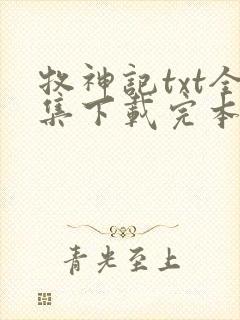 牧神記txt全
集下載完本
青光至上